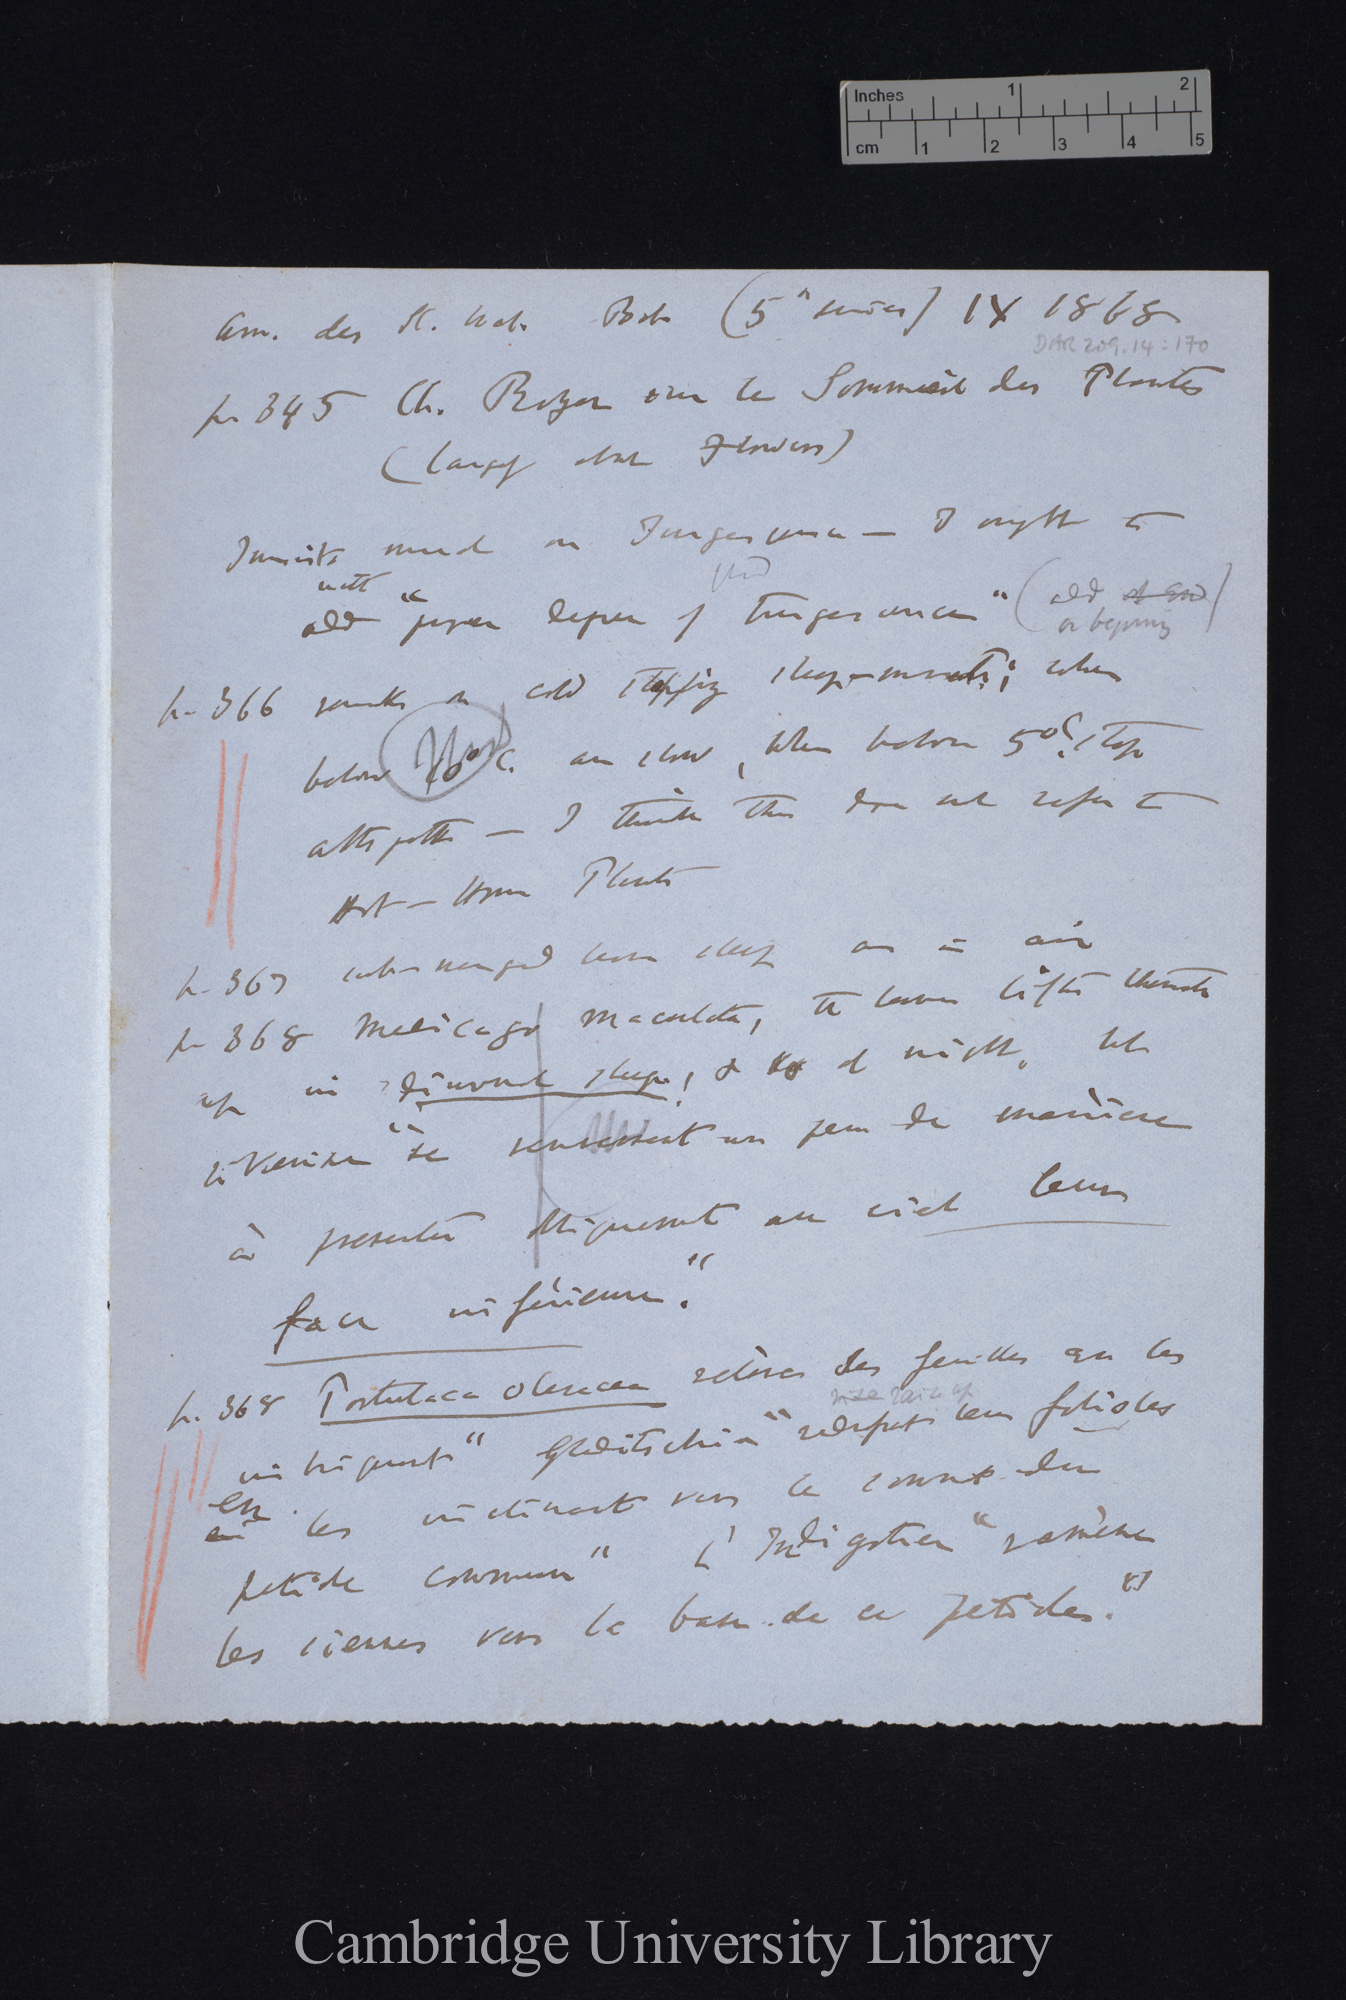 Inches 1 2
cm 1 2 3 4 5
Ann. des Sc. Nat. Bot. (5th series) IX 1868
DAR 209.14:170
p. 345 Ch. Royer sur le Sommeil des Plantes
(largely about Flowers)
Insists much on Turgescence — I ought to
with
add "proper degree of turgescence" (add at End
or beginning)
p. 366 remarks on cold stopping sleep-movements; when
below 10° C. are slow, when below 5° C. stop
altogether — I think this does not refer to
Hot-House Plants
p. 367 sub-merged leaves sleep as in air
p 368 Medicago maculata, the leaves lifts themselves
up in diurnal sleep, & at night, the
"se renversent un peu de manière
à présenter obliquement au ciel leur
face inférieure."
p. 368 Portulaca oleracea relève des feuilles en les
raise up
imbriquant" Gleditschia " leur folioles
en
les inclinant vers le sommet du
pétiole commun" L'Indigotier "ramène
les siennes vers la base de ce pétioles."
Cambridge University Library